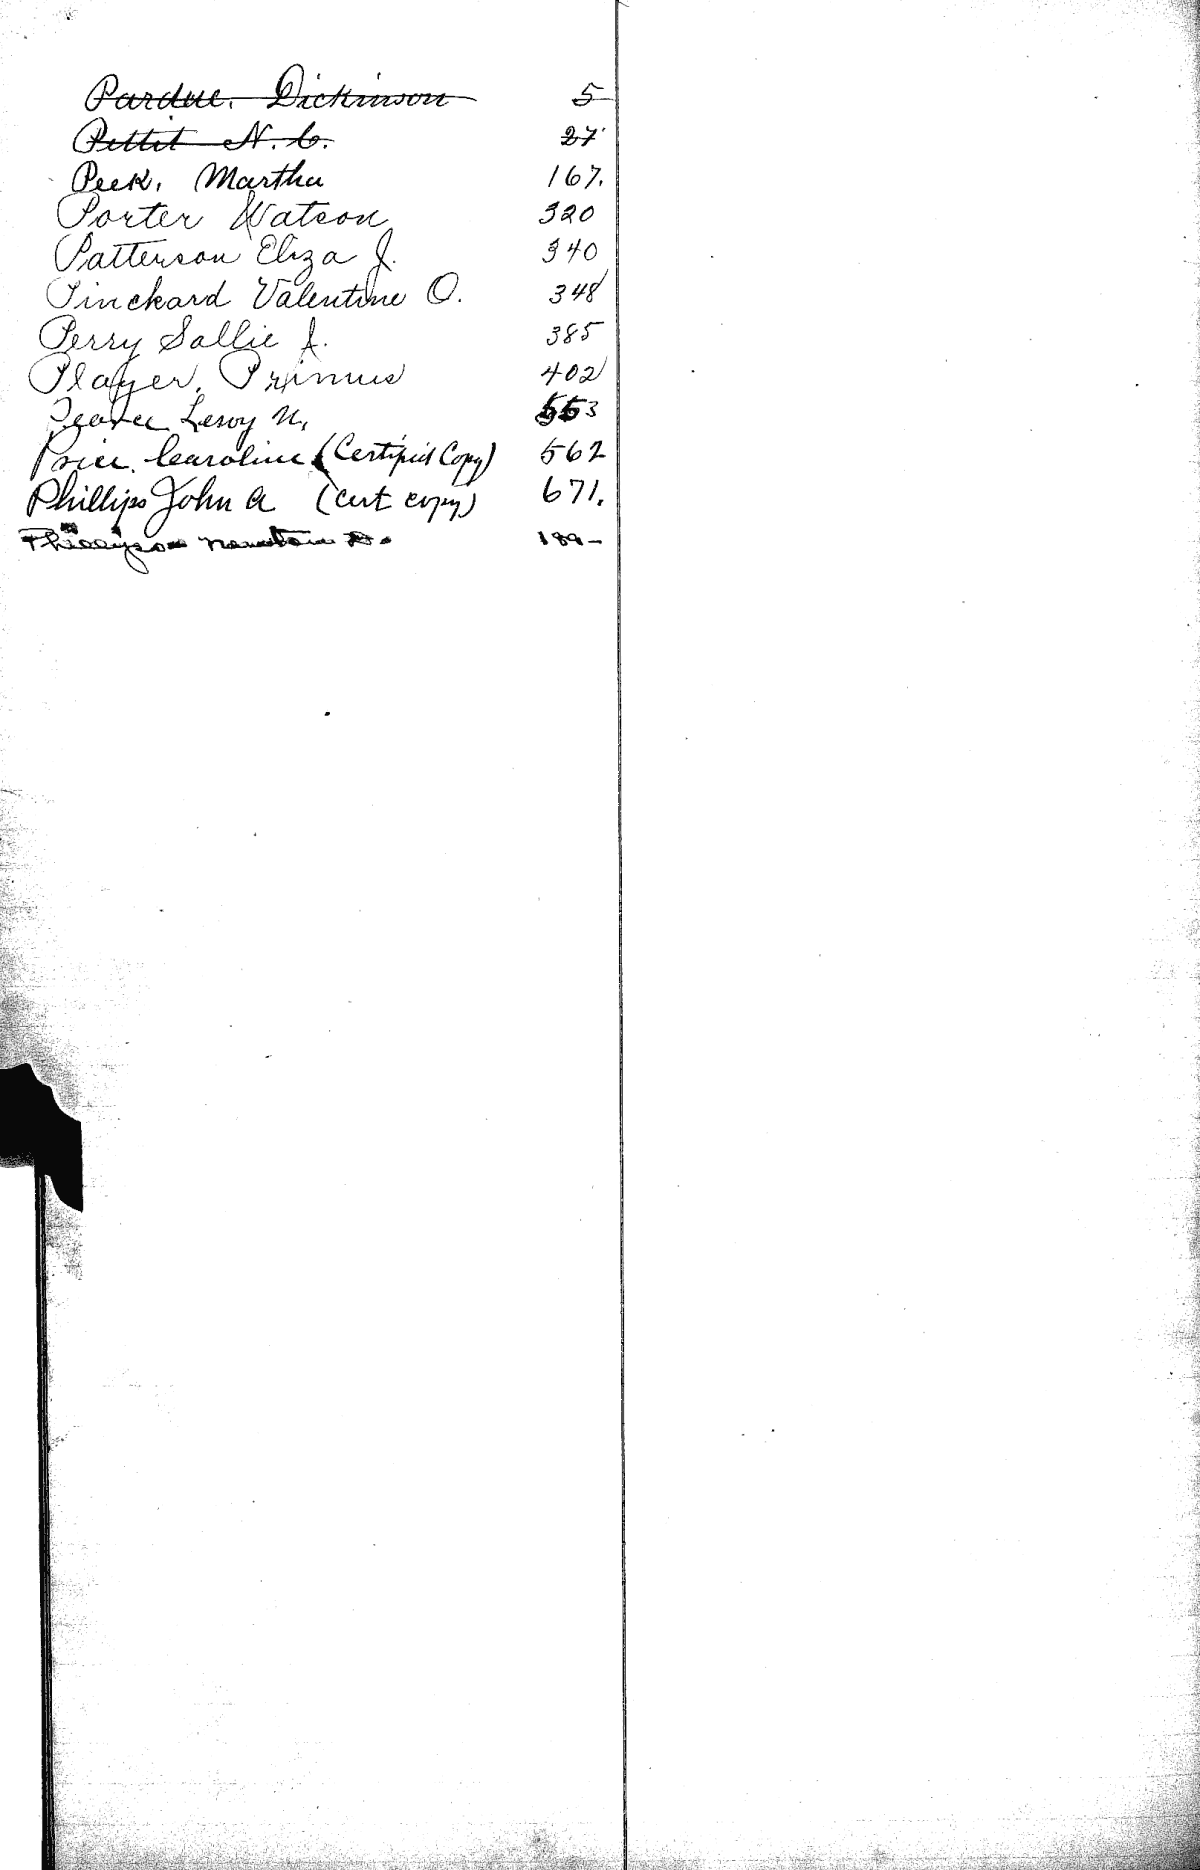 Pardue, Dickinson 5
Pettit N. C. 27
Peek, Martha 167.
Porter Watson 320
Patterson Eliza J. 340
Pinckard Valentine O. 348
Perry Sallie J. 385
Player, Primus 402
Pearce Leroy N. 553
Price, Caroline (Certified Copy) 562
Phillips John A (Cert copy) 671.
Newton D. 189-